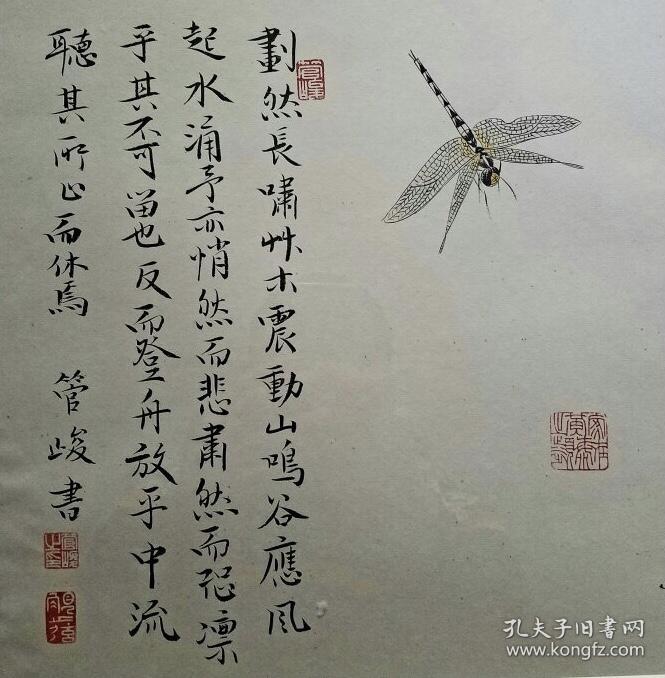 劃然長嘯艸木震動山鳴谷應風
起水涌予亦悄然而悲肅然而恐凛
乎其不可留也反而登舟放乎中流
聽其所止而休焉
管峻書
孔夫子旧书网
www.kongfz.com